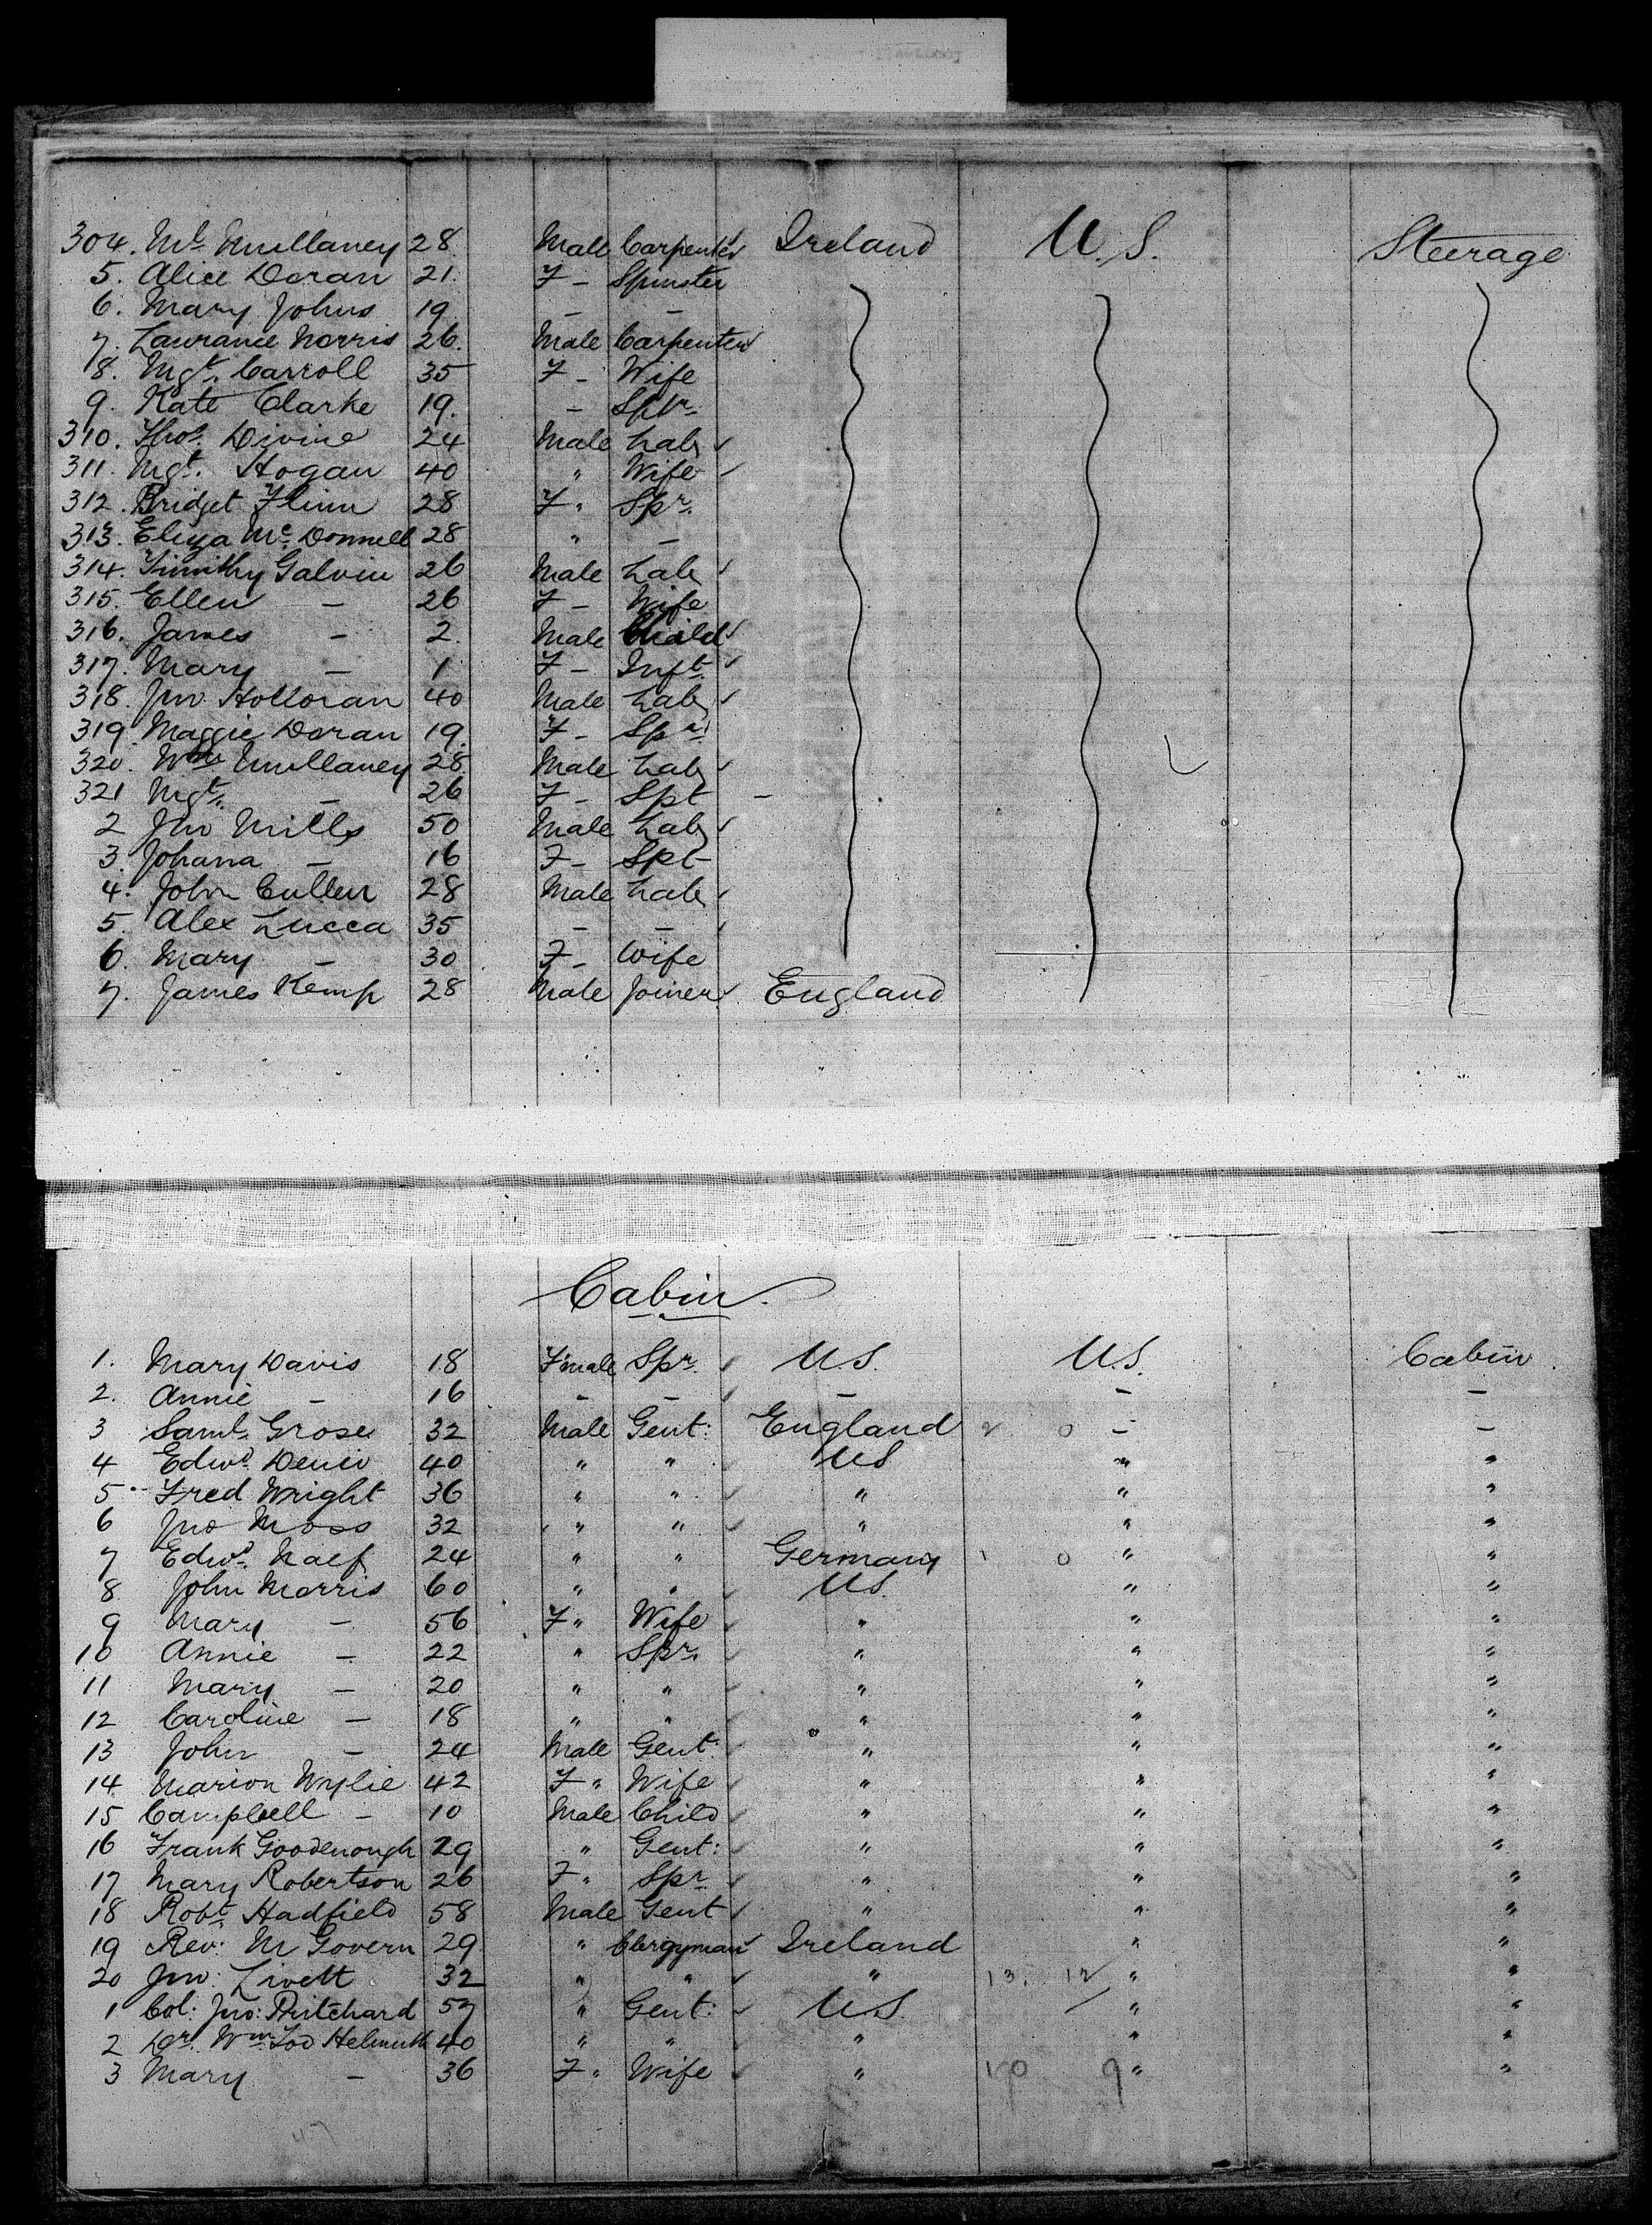 304. Ml. Mullaney 28 Male Carpenter Ireland U.S. Steerage
5. Alice Doran 21. F - Spinster
6. Mary Johns 19 - -
7. Laurance Norris 26. Male Carpenter
8. Mgt. Carroll 35 F - Wife
9. Kate Clarke 19. - Spr.
310. Thos. Divine 24 Male Labr
311. Mgt. Hogan 40 " Wife
312. Bridget Flinn 28 F " Spr.
313. Eliza Mc Donnell 28 " -
314. Timithy Galvin 26 Male Labr
315. Ellen - 26 F - Wife
316. James - 2. Male Child
317. Mary - 1 F - Inft.
318. Jno Holloran 40 Male Labr
319. Maggie Doran 19. F - Spr.
320. Wm Mullaney 28. Male Labr
321 Mgt. - 26 F - Spt -
2 Jno Mills 50 Male Labr
3. Johana - 16 F - Spt
4. John Cullen 28 Male Labr
5. Alex Lucca 35 - -
6. Mary - 30 F - Wife
7. James Kemp 28 Male Joiner England
Cabin.
1. Mary Davis 18 F'male Spr. U S. U.S. Cabin
2. Annie - 16 - - - - -
3 Saml. Grose 32 Male Gent: England 2 0 - -
4 Edwd. 40 " " U S " "
5 Fred Wright 36 " " " " "
6 Jno Moss 32 " " " " "
7 Edwd. Naef 24 " " Germany 1 0 " "
8. John Morris 60 " " U S. " "
9 Mary - 56 F " Wife " " "
10 Annie - 22 " Spr. " " "
11 Mary - 20 " " " " "
12 Caroline - 18 " " " " "
13 John - 24 Male Gent: " " "
14 Marion Wylie 42 F " Wife " " "
15 Campbell - 10 Male Child " " "
16 Frank Goodenough 29 " Gent: " " "
17 Mary Robertson 26 F " Spr. " " "
18 Robt. Hadfield 58 Male Gent " " "
19 Rev: M Govern 29 " Clergyman Ireland " "
20 Jno: Livett 32 " " " 13. 12 " "
1 Col: Jno: Pritchard 57 " Gent: U S. " "
2 Dr. Wm. Tod Helmuth 40 " " " " "
3 Mary - 36 F " Wife " 9 " "